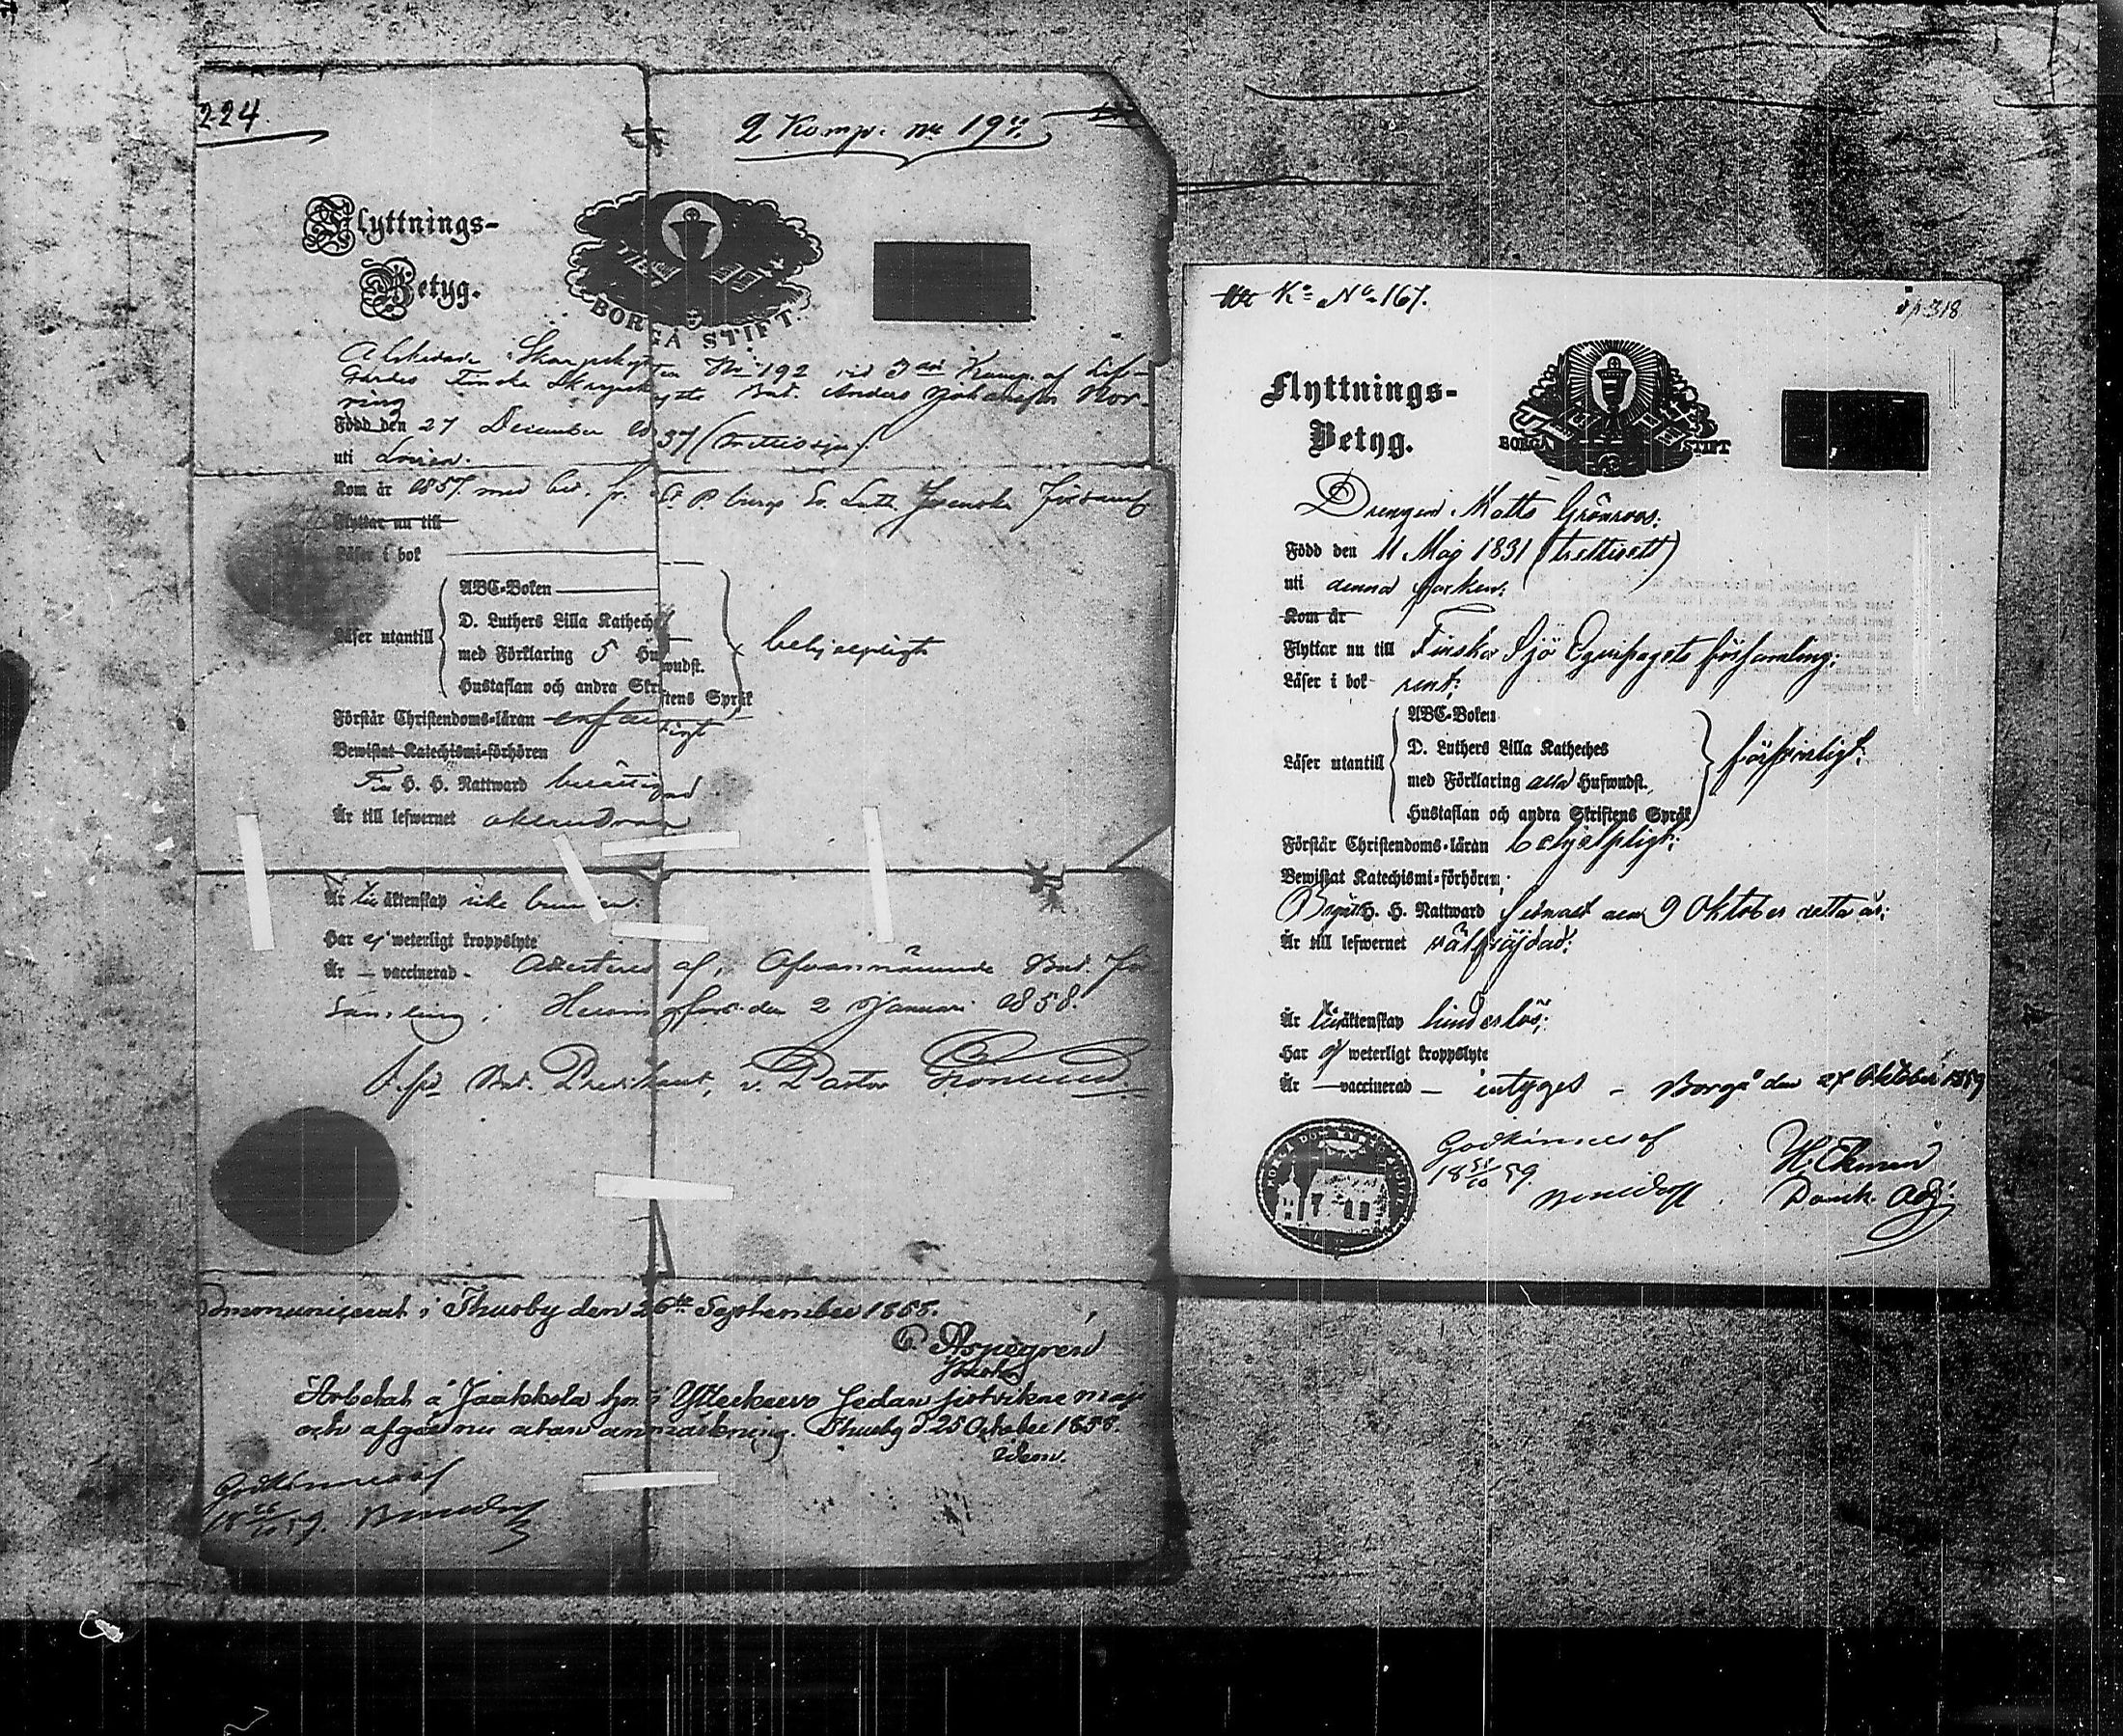 224.
2 Komp. No 197.
Flyttnings-
Betyg.
BORGÅ STIFT.
Afskedade Skarpskytten No 192 vid 3dje Komp. af Lif-
Gardes Finska Skarpskytte Bat. Anders Johansson Nor-
ring
Född den 27 December 1837 (trettiosju)
uti
Kom år 1857 med bet. fr. St. P.burgs Ev. Luth. Svenska Församl
Flyttar nu till
Läser i bok
ABC-Boken
D. Luthers Lilla Katheches
med Förklaring 5 Hufwudst.
Hustaflan och andra Skriftens Språk
Läser utantill
behjelpligt
Förstår Christendoms-läran enfaldigt
Bewistat Katechismi-förhören
H. H. Nattward berättigad
Är till lefwernet oklandrad
Är till äktenskap icke bunden.
Har ej weterligt kroppslyte
Är — vaccinerad - Attesteras af, Ofvannämnde Bat. För
samling; Helsingfors den 2 Januari 1858.
Bat. Predikant, v. Pastor
ommunicerat i Thusby den 26te September 1858.
C. Aspegren
Arbetat å Jaakkola hn. i sedan sistvikne maji
och afgår nu utan anmärkning. Thusby d. 25 October 1858.
idem.
Godkännes af
18 59.
K: No 167.
p 318
Flyttnings-
Betyg.
BORGÅ STIFT
Drengen Matts Grönroos:
Född den 11 Maj 1831 (trettioett)
uti denna socken:
Kom år
Flyttar nu till Finska Sjö Equipagets församling:
Läser i bok rent:
ABC-Boken
D. Luthers Lilla Katheches
Läser utantill
med Förklaring alla Hufwudst.
Hustaflan och andra Skriftens Språk
försvarligt:
Förstår Christendoms-läran behjelpligt:
Bewistat Katechismi-förhören;
Begått H. H. Nattward sednast den 9 Oktober detta år;
Är till lefwernet välfräjdad:
Är till äktenskap hinderlös;
Har ej weterligt kroppslyte
Är — vaccinerad — intygas - Borgå den 27 Oktober 1859
Godkännes af
18 31/10 59.
H. Ekman
Domk. Adj: